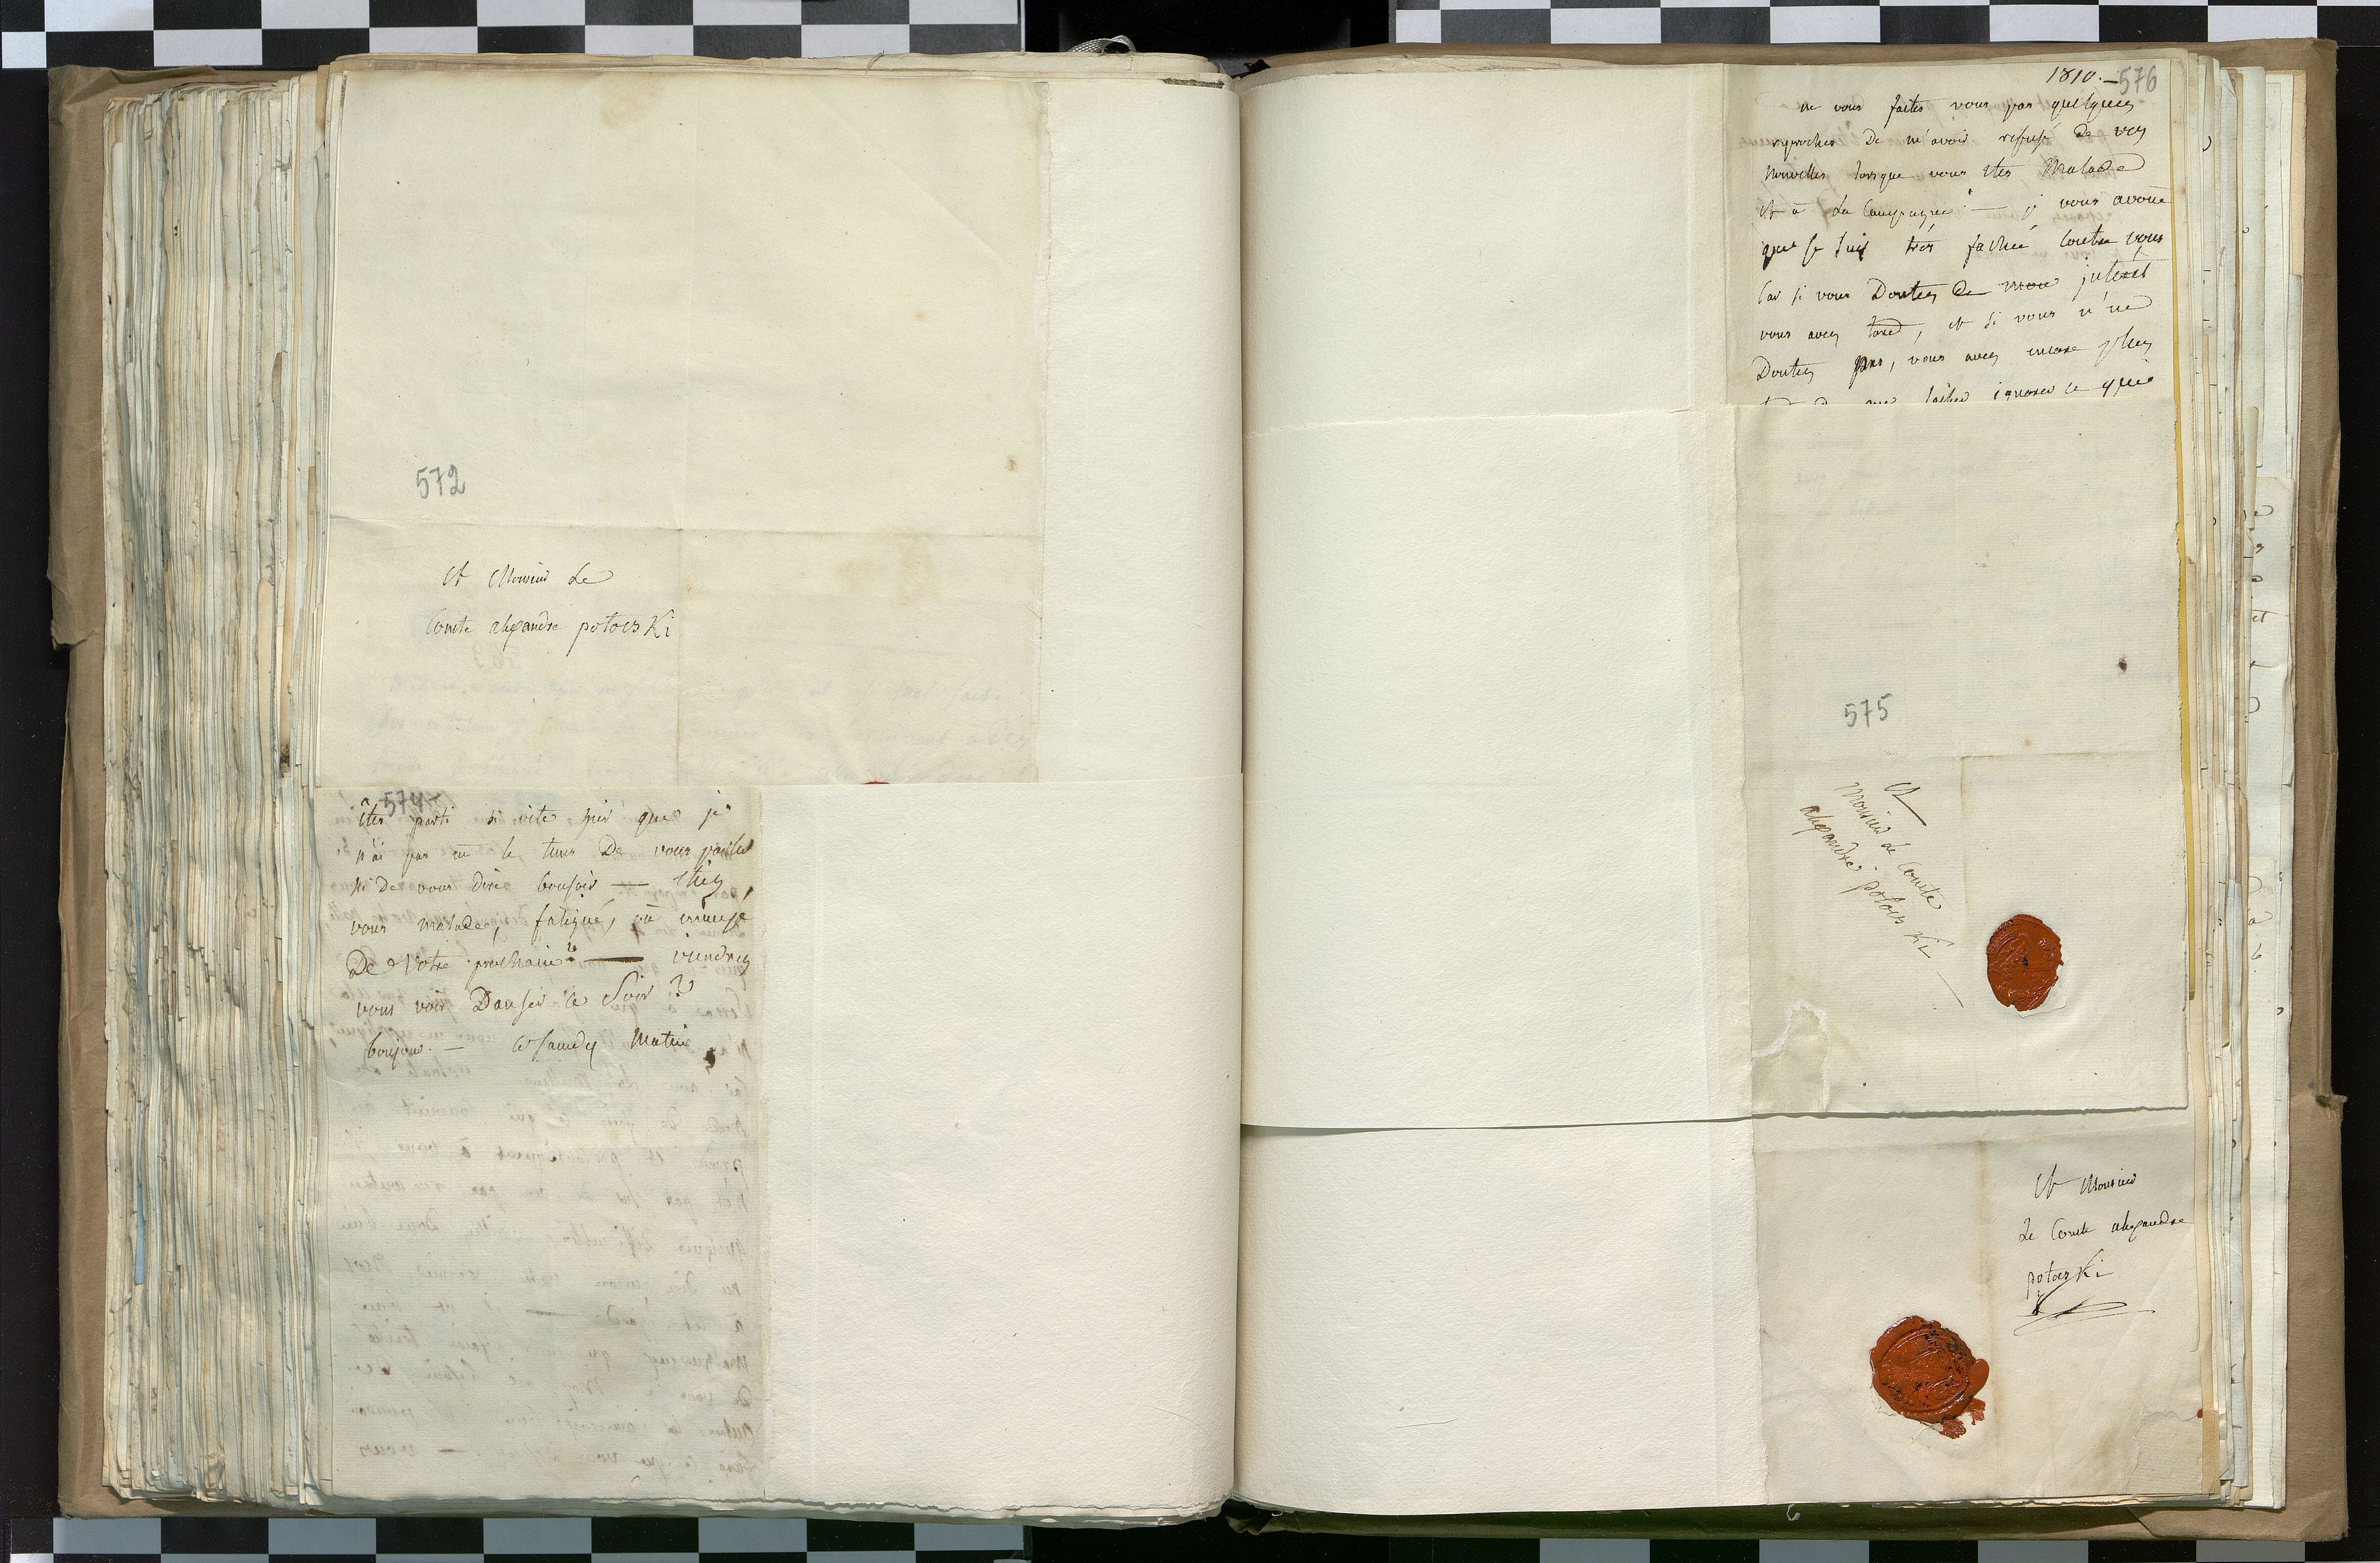 572
A Monsieur Le
Comte alexandre potocki
574
êtes parti si vite hier que je
n'ai pas eu le tems De vous parler
ni De vous dire bonsoir — êtes
vous malade, fatigué, où ennuyé
De votre prochain? — viendrez
vous voir Danser ce Soir?
bonjour. — ce samedy Matin
1810. — 576
ne vous faites vous pas quelques
reproches De m'avoir refusé De vos
nouvelles lorsque vous êtes Malade
et à La Campagne? — je vous avoue
que je suis très fachée contre vous
Car si vous Doutez De mon interèt
vous avez tord, et si vous n'en
Doutez pas, vous avez encore plus
laisser ignorer ce qui
575
A
Monsieur Le Comte
alexandre potocki
A Monsieur
Le Comte alexandre
potocki